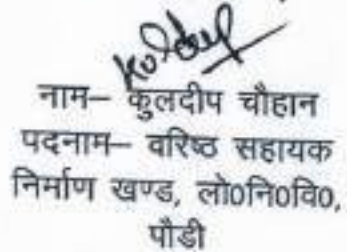 Kuldeep
नाम– कुलदीप चौहान
पदनाम– वरिष्ठ सहायक
निर्माण खण्ड, लो0नि0वि0,
पौडी